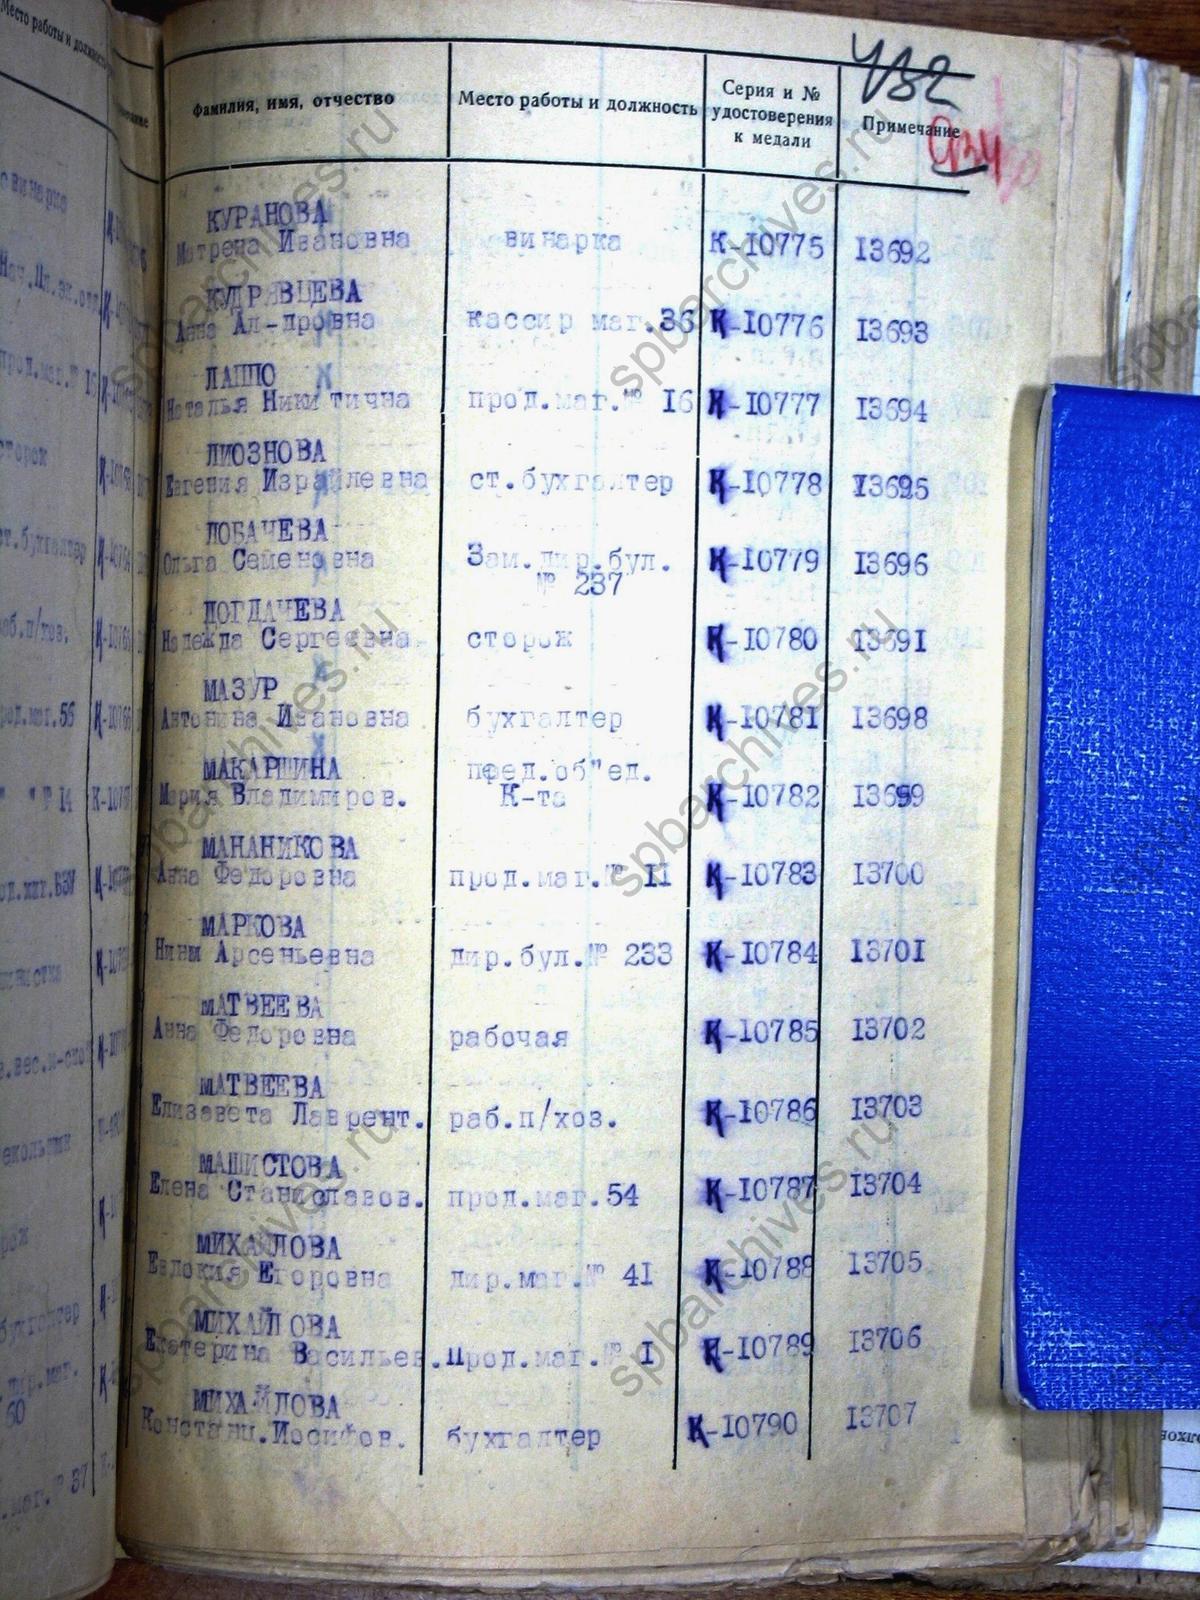 Место работы и должность
432
Фамилия, имя, отчество Место работы и должность Серия и № удостоверения к медали Примечание
КУРАНОВА
Матрена Ивановна винарка К-10775 13692
КУДРЯВЦЕВА
Анна Ал-дровна кассир маг.36 К-10776 13693
ЛАППО
Наталья Никитична прод.маг.№ 16 К-10777 13694
ЛИОЗНОВА
Евгения Израйлевна ст.бухгалтер К-10778 13695
ЛОБАЧЕВА
Ольга Семеновна Зам.дир.бул. К-10779 13696
№ 237
ЛОГДАЧЕВА
Надежда Сергеевна сторож К-10780 13691
МАЗУР
Антонина Ивановна бухгалтер К-10781 13698
МАКАРШИНА пред.об"ед.
Мария Владимиров. К-та К-10782 13699
МАНАНИКОВА
Анна Федоровна прод.маг.№ 11 К-10783 13700
МАРКОВА
Нина Арсеньевна дир.бул.№ 233 К-10784 13701
МАТВЕЕВА
Анна Федоровна рабочая К-10785 13702
МАТВЕЕВА
Елизавета Лаврент. раб.п/хоз. К-10786 13703
МАШИСТОВА
Елена Станиславов. прод.маг.54 К-10787 13704
МИХАЙЛОВА
Евдокия Егоровна дир.маг.№ 41 К-10788 13705
МИХАЙЛОВА
Екатерина Васильев. прод.маг.№ 1 К-10789 13706
МИХАЙЛОВА
Констанц.Иосифов. бухгалтер К-10790 13707
spbarchives.ru